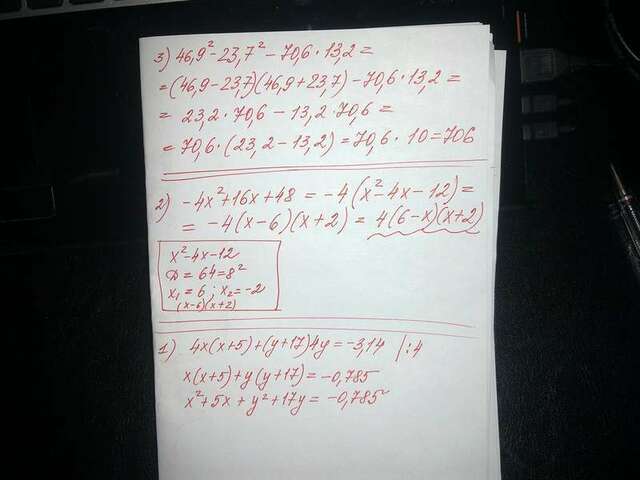 3) 46,9² - 23,7² - 70,6 · 13,2 =
= (46,9 - 23,7)(46,9 + 23,7) - 70,6 · 13,2 =
= 23,2 · 70,6 - 13,2 · 70,6 =
= 70,6 · (23,2 - 13,2) = 70,6 · 10 = 706
2) -4x² + 16x + 48 = -4(x² - 4x - 12) =
= -4(x - 6)(x + 2) = 4(6 - x)(x + 2)
x² - 4x - 12
D = 64 = 8²
x₁ = 6 ; x₂ = -2
(x - 6)(x + 2)
1) 4x(x + 5) + (y + 17)4y = -3,14 | : 4
x(x + 5) + y(y + 17) = -0,785
x² + 5x + y² + 17y = -0,785